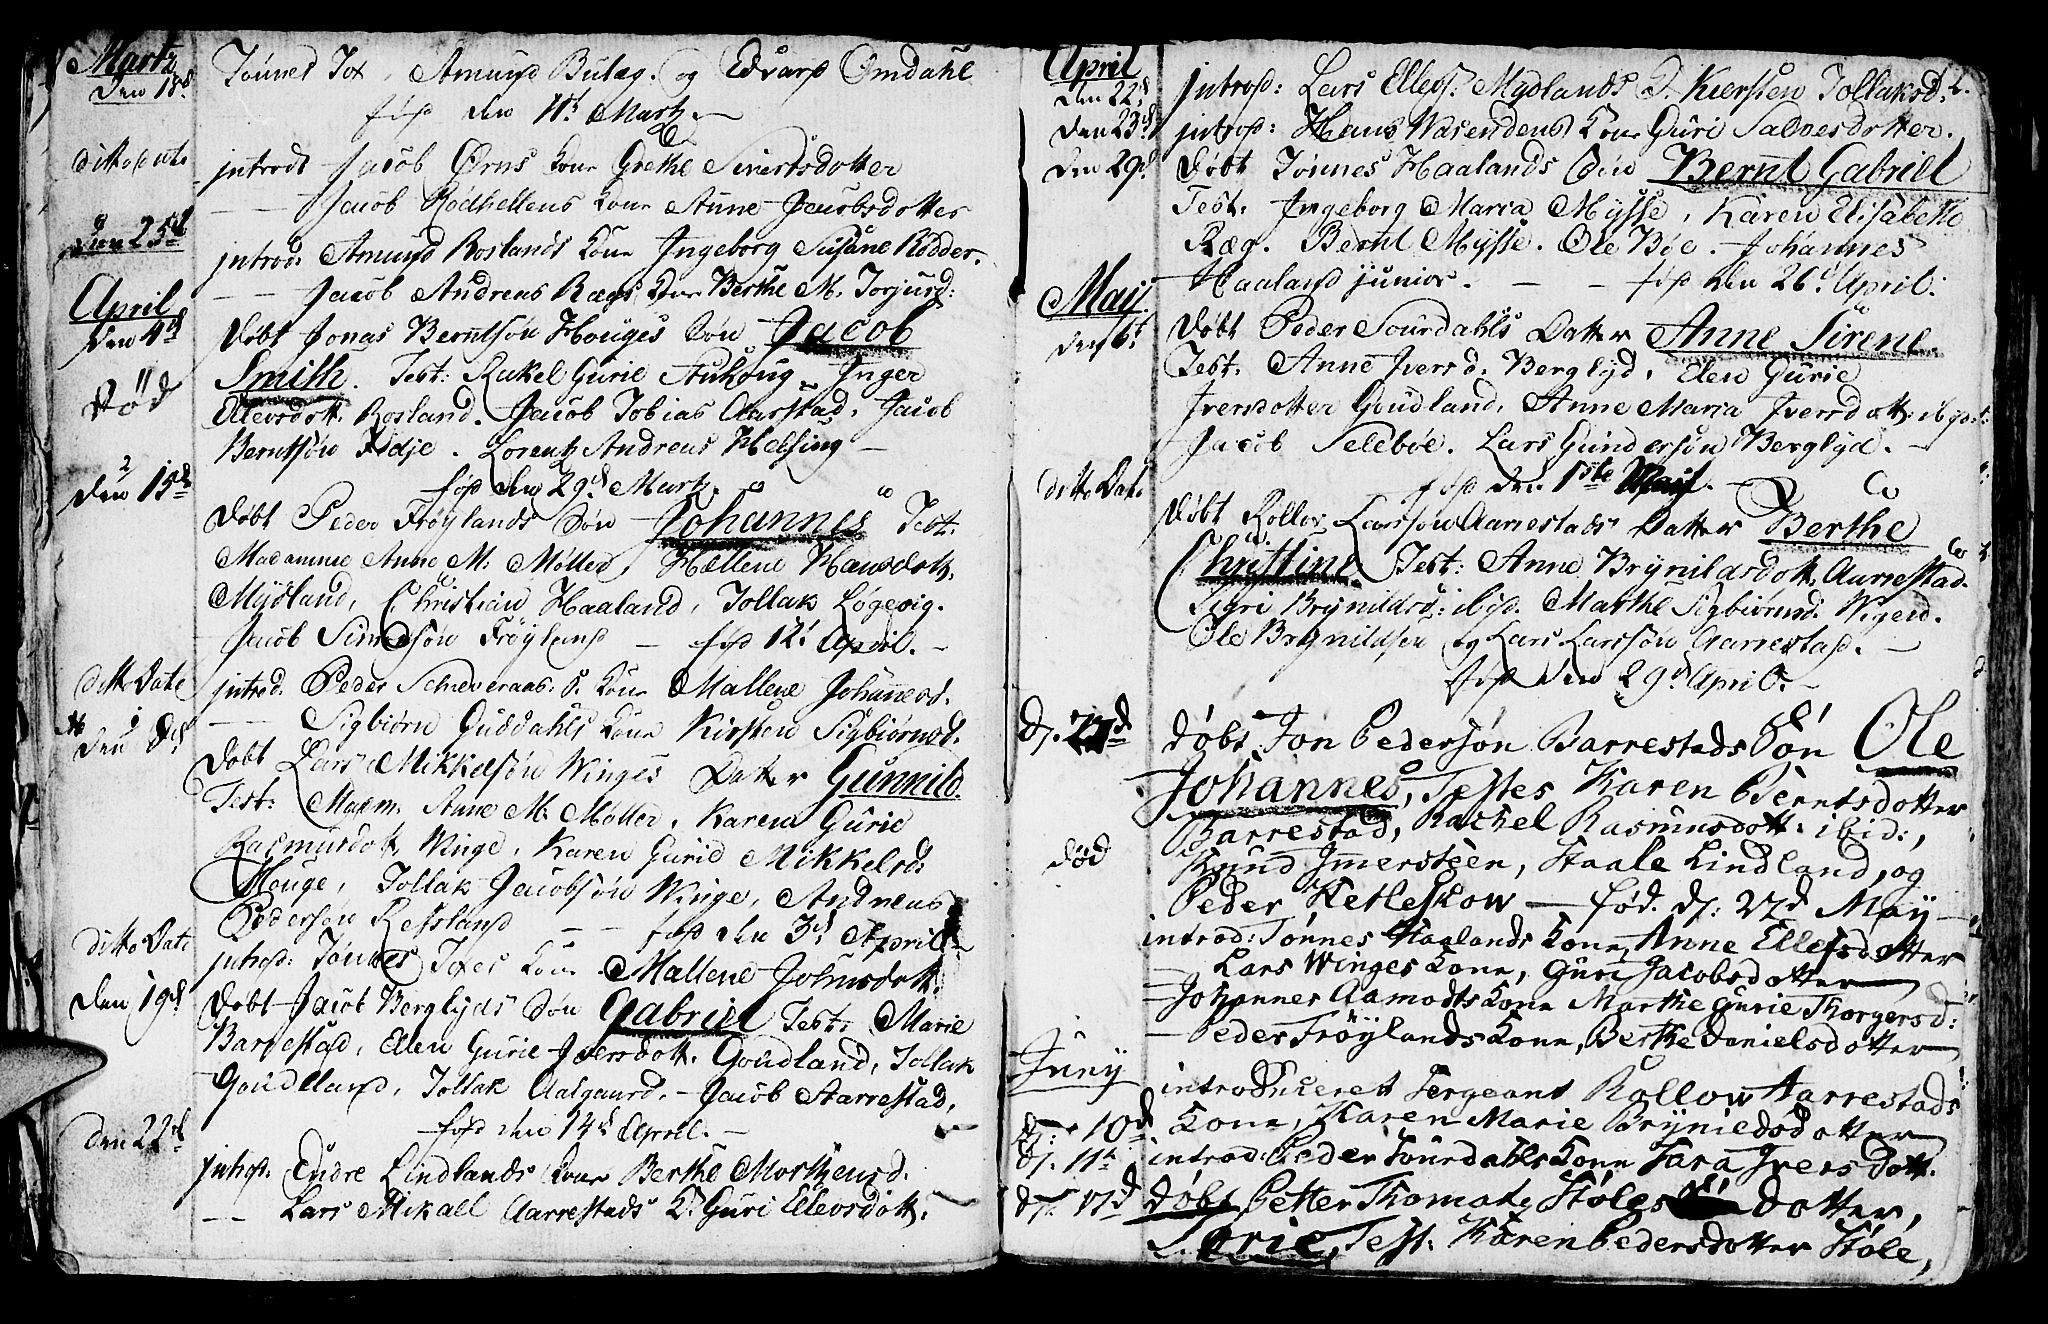 Martz
den 18d Tönnes Tox, Amund Bulæg. og Edvard Omdahl
fød den 11t Martz.
ditto Dato introd: Jacob Ørns Kone Grethe Sivertsdotter
— — Jacob Rödhellens Kone Anne Jacobsdotter
den 25d introd: Amund Roslands Kone Ingeborg Susane Rödder.
— — Jacob Andreas Rægs Kone Berthe M. Torjusd:
April
den 4d döbt Jonas Berntsön Houges Sön Jacob
död Smith. Test: Rakel Gurie Inger
Ellevsdott. Rosland. Jacob Tobias Aarstad, Jacob
Berntsön Kidje. Lorentz Andreas Helsing —
fød den 29d Martz.
den 15d döbt Peder Fröylands Sön Johannes Test:
Madamme Anne M. Møller, Hellene Hansdott.
Mydland, Christian Haaland, Tollak Løgevig.
Jacob Simonsön Fröyland — fød 12t April. —
ditto Date introd. Peder Kone Mallene Johanesd.
— — Sigbiörn Guddahls Kone Kirsten Sigbiörnsd.
den 8d döbt Lars Mikkelsön Winges Datter Gunnild.
Test: Madm. Anne M. Møller, Karen Gurie
Rasmusdott. Winge, Karen Gurie Mikkelsd.
Houge, Tollak Jacobsön Winge, Andreas
Pedersön Refsland — — fød den 3d April
ditto Date introd: Tönnes Toxes Kone Mallene Johnsdott.
den 19d döbt Jacob Berglyds Sön Gabriel Test: Marie
Barrestad, Ellen Gurie Iversdott. Goudland, Tollak
Goudland, Tollak Aalgaard, Jacob Aarrestad,
fød den 14d April. —
den 22d introd. Endre Lindlands Kone Berthe Morthensd.
— — Lars Mikall Aarrestads K: Guri Ellevsdott.
April
den 22d introd: Lars Ellefs. Mydlands K. Kiersten Tollaksd.
den 23d introd: Hans Wasendens Kone Guri Salvesdotter.
den 29d döbt Tønnes Haalands Sön Bernt Gabriel
Test: Ingeborg Maria Mysse, Karen Elisabeth
Ræg. Bernt Mysse. Ole Bøe. Johannes
Haaland junior. — — fød den 26d April.
Maij
den 6t döbt Peder Sourdahls Datter Anne Sirene.
Test. Anne Iversd. Berglyd, Elen Gurie
Iversdotter Goudland, Anne Maria Iversdott. ibid:
Jacob Selebøe. Lars Gundersøn Berglyd. —
fød den 1ste Maij. —
ditto Dato döbt Rollov Larssön Aarrestads Datter Berthe
Christine. Test: Anne Brynildsdott. Aarrestad.
Sigri Brynildsd: ibid. Marthe Sigbiørnsd. Wigesd.
Ole Brynildsen og Lars Larssøn Aarrestad. —
fød den 29d April. —
d. 27d döbt Jon Pedersøn Barrestads Søn Ole
Johannes, Testes Karen Berntsdotter
Barrestad, Rachel Rasmusdott: ibid:,
död Knud Immersteen, Staale Lindland, og
Peder Ketleskow — fød. d: 22d May —
introd: Tønnes Haalands Kone, Anne Ellefsdotter
— Lars Winges Kone, Guri Jacobsdotter
— Johannes Aamodts Kone Marthe Gurie Thorgersd:
— Peder Frøylands Kone, Berthe Danielsdotter
Juny introduceret Sergeant Rollow Aarrestads
d: 10d Kone, Karen Marie Bryniedsdotter
d. 11te introd: Peder Sourdahls Kone Sara Iversdott.
d. 17d døbt Petter Thomas. Støles dotter,
Sørie, Test: Karen Pedersdotter Støle,